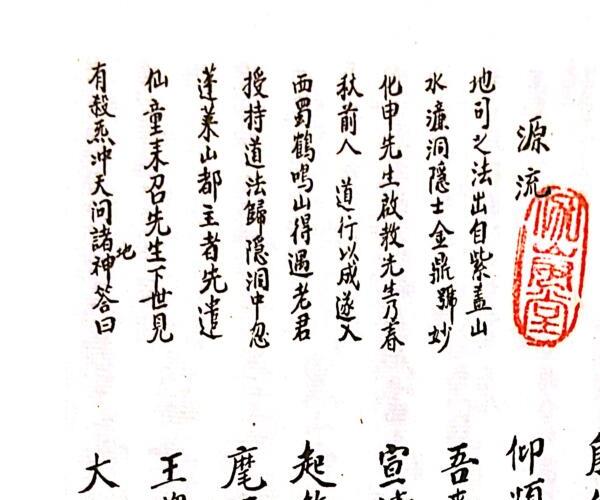 源流
地司之法出自紫盖山
水濂洞隱士金鼎號妙
化申先生啟教先生乃春
秋前人 道行以成遂入
西蜀鶴鳴山得遇老君
授持道法歸隱洞中忽
蓬萊山都主者先遣
仙童耒召先生下世見
有殺炁冲天问諸地神答曰
仰
吾
宣
起
麾
王
大